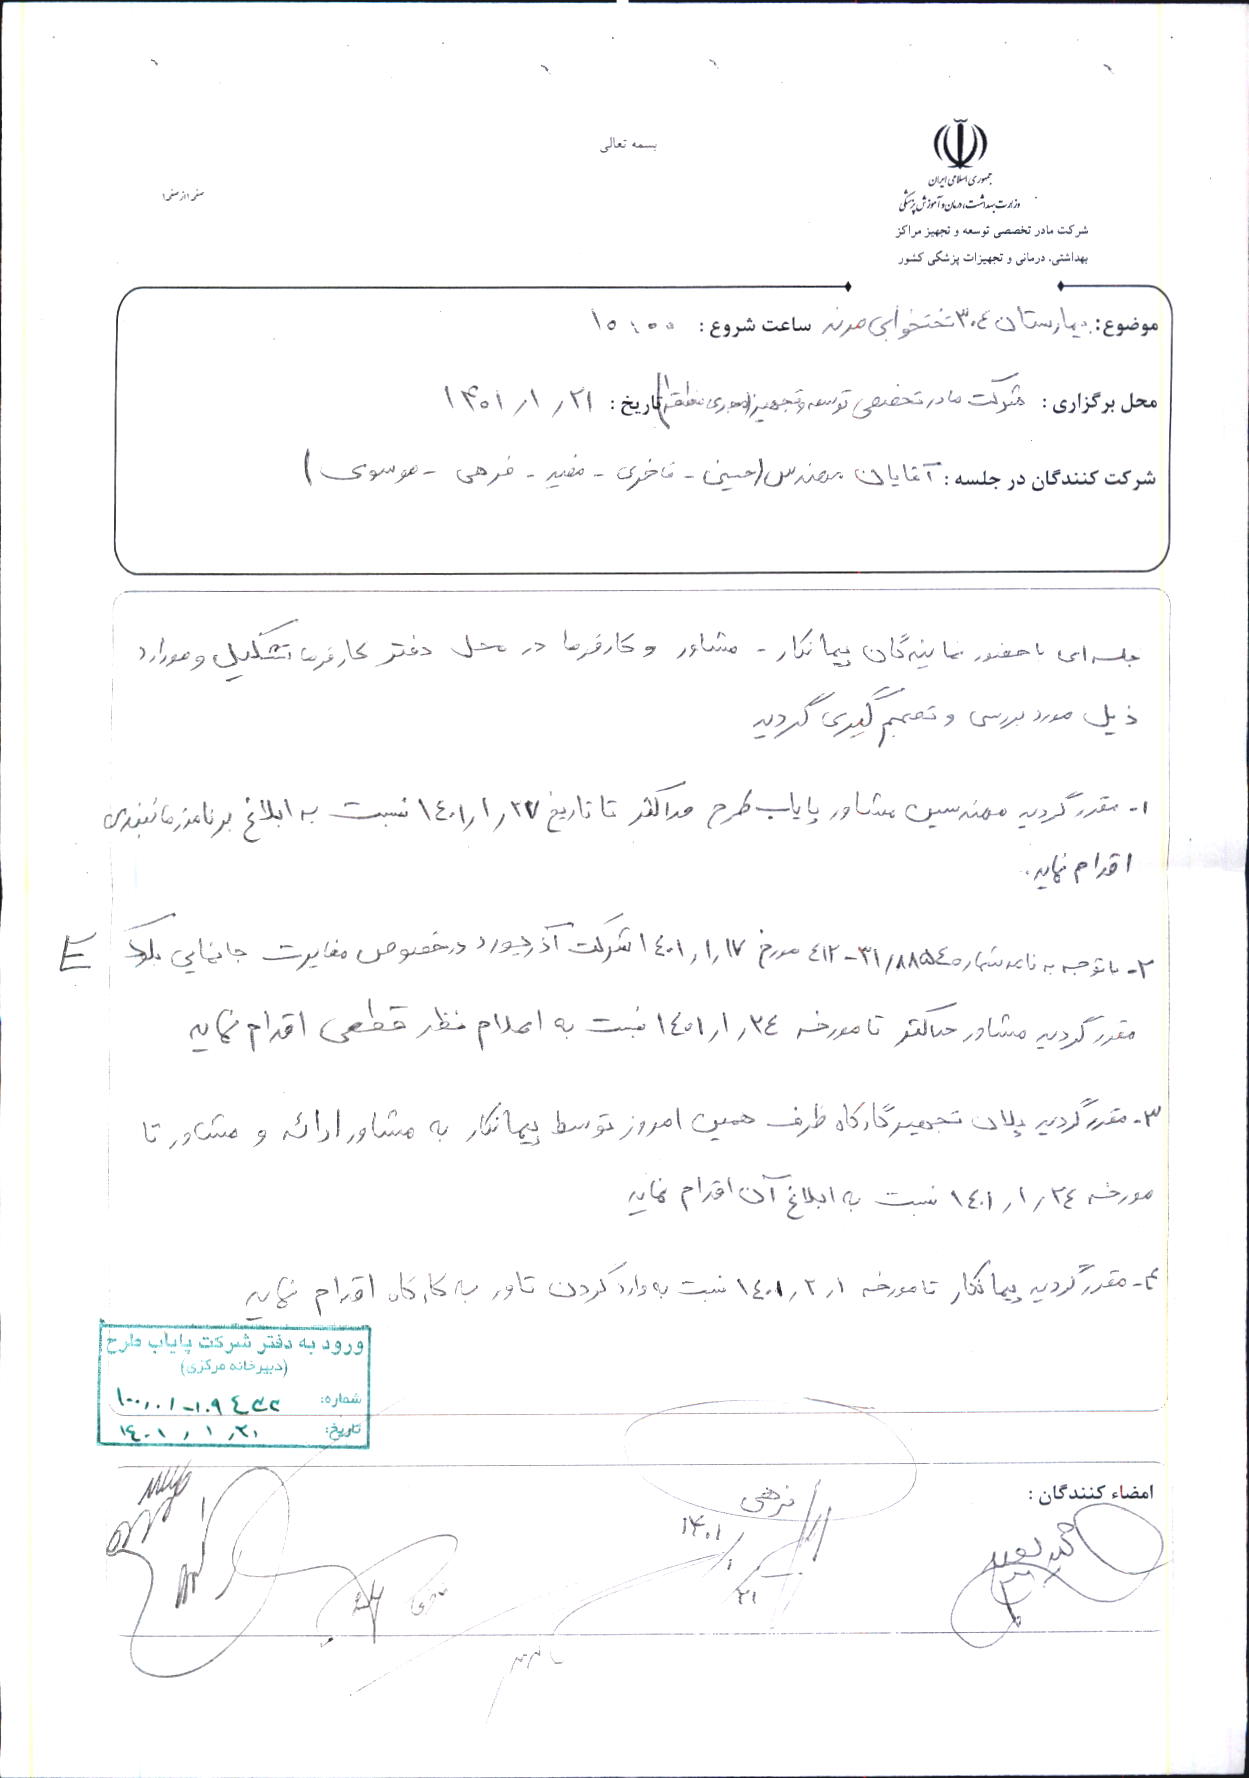 بسمه تعالی
جمهوری اسلامی ایران
وزارت بهداشت، درمان و آموزش پزشکی
شرکت مادر تخصصی توسعه و تجهیز مراکز
بهداشتی، درمانی و تجهیزات پزشکی کشور
صفحه ۱ از صفحه ۱
موضوع: بیمارستان ۳۰۴ تختخوابی مرند ساعت شروع : ۱۵:۰۰
محل برگزاری : شرکت مادر تخصصی توسعه و تجهیز تاریخ : ۱۴۰۱/۱/۲۱
شرکت کنندگان در جلسه : آقایان مهندس (حسینی - فاخری - مفید - فرهی - موسوی)
جلسه ای با حضور نمایندگان پیمانکار - مشاور و کارفرما در محل دفتر کارفرما تشکیل و موارد
ذیل مورد بررسی و تصمیم گیری گردید
۱- مقرر گردید مهندسین مشاور پایاب طرح حداکثر تا تاریخ ۱۴۰۱/۱/۲۷ نسبت به ابلاغ برنامه زمانبندی
اقدام نماید.
۲- با توجه به نامه شماره ۴۱۲-۳۱/۸۸۵۴۰ مورخ ۱۴۰۱/۱/۱۷ شرکت آذر درخصوص مغایرت جانمایی بلوک E
مقرر گردید مشاور حداکثر تا مورخه ۱۴۰۱/۱/۲۴ نسبت به اعلام نظر قطعی اقدام نماید
۳- مقرر گردید پلان تجهیز کارگاه ظرف همین امروز توسط پیمانکار به مشاور ارائه و مشاور تا
مورخه ۱۴۰۱/۱/۲۴ نسبت به ابلاغ آن اقدام نماید
۴- مقرر گردید پیمانکار تا مورخه ۱۴۰۱/۲/۱ نسبت به وارد کردن تاور به کارگاه اقدام نماید
ورود به دفتر شرکت پایاب طرح
(دبیرخانه مرکزی)
شماره:
تاریخ: ۱۴۰۱/۱/۲۱
امضاء کنندگان :
فرهی
۱۴۰۱/۱/۲۱